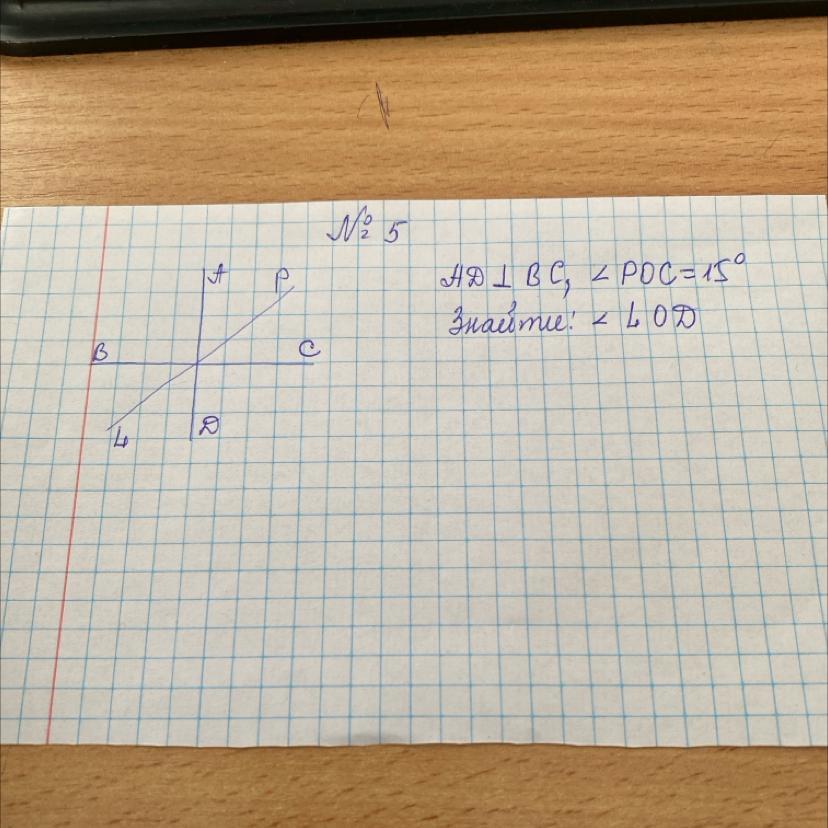 № 5
A P
B C
L D
AD ⊥ BC, ∠ POC = 15°
Знайти: ∠ LOD